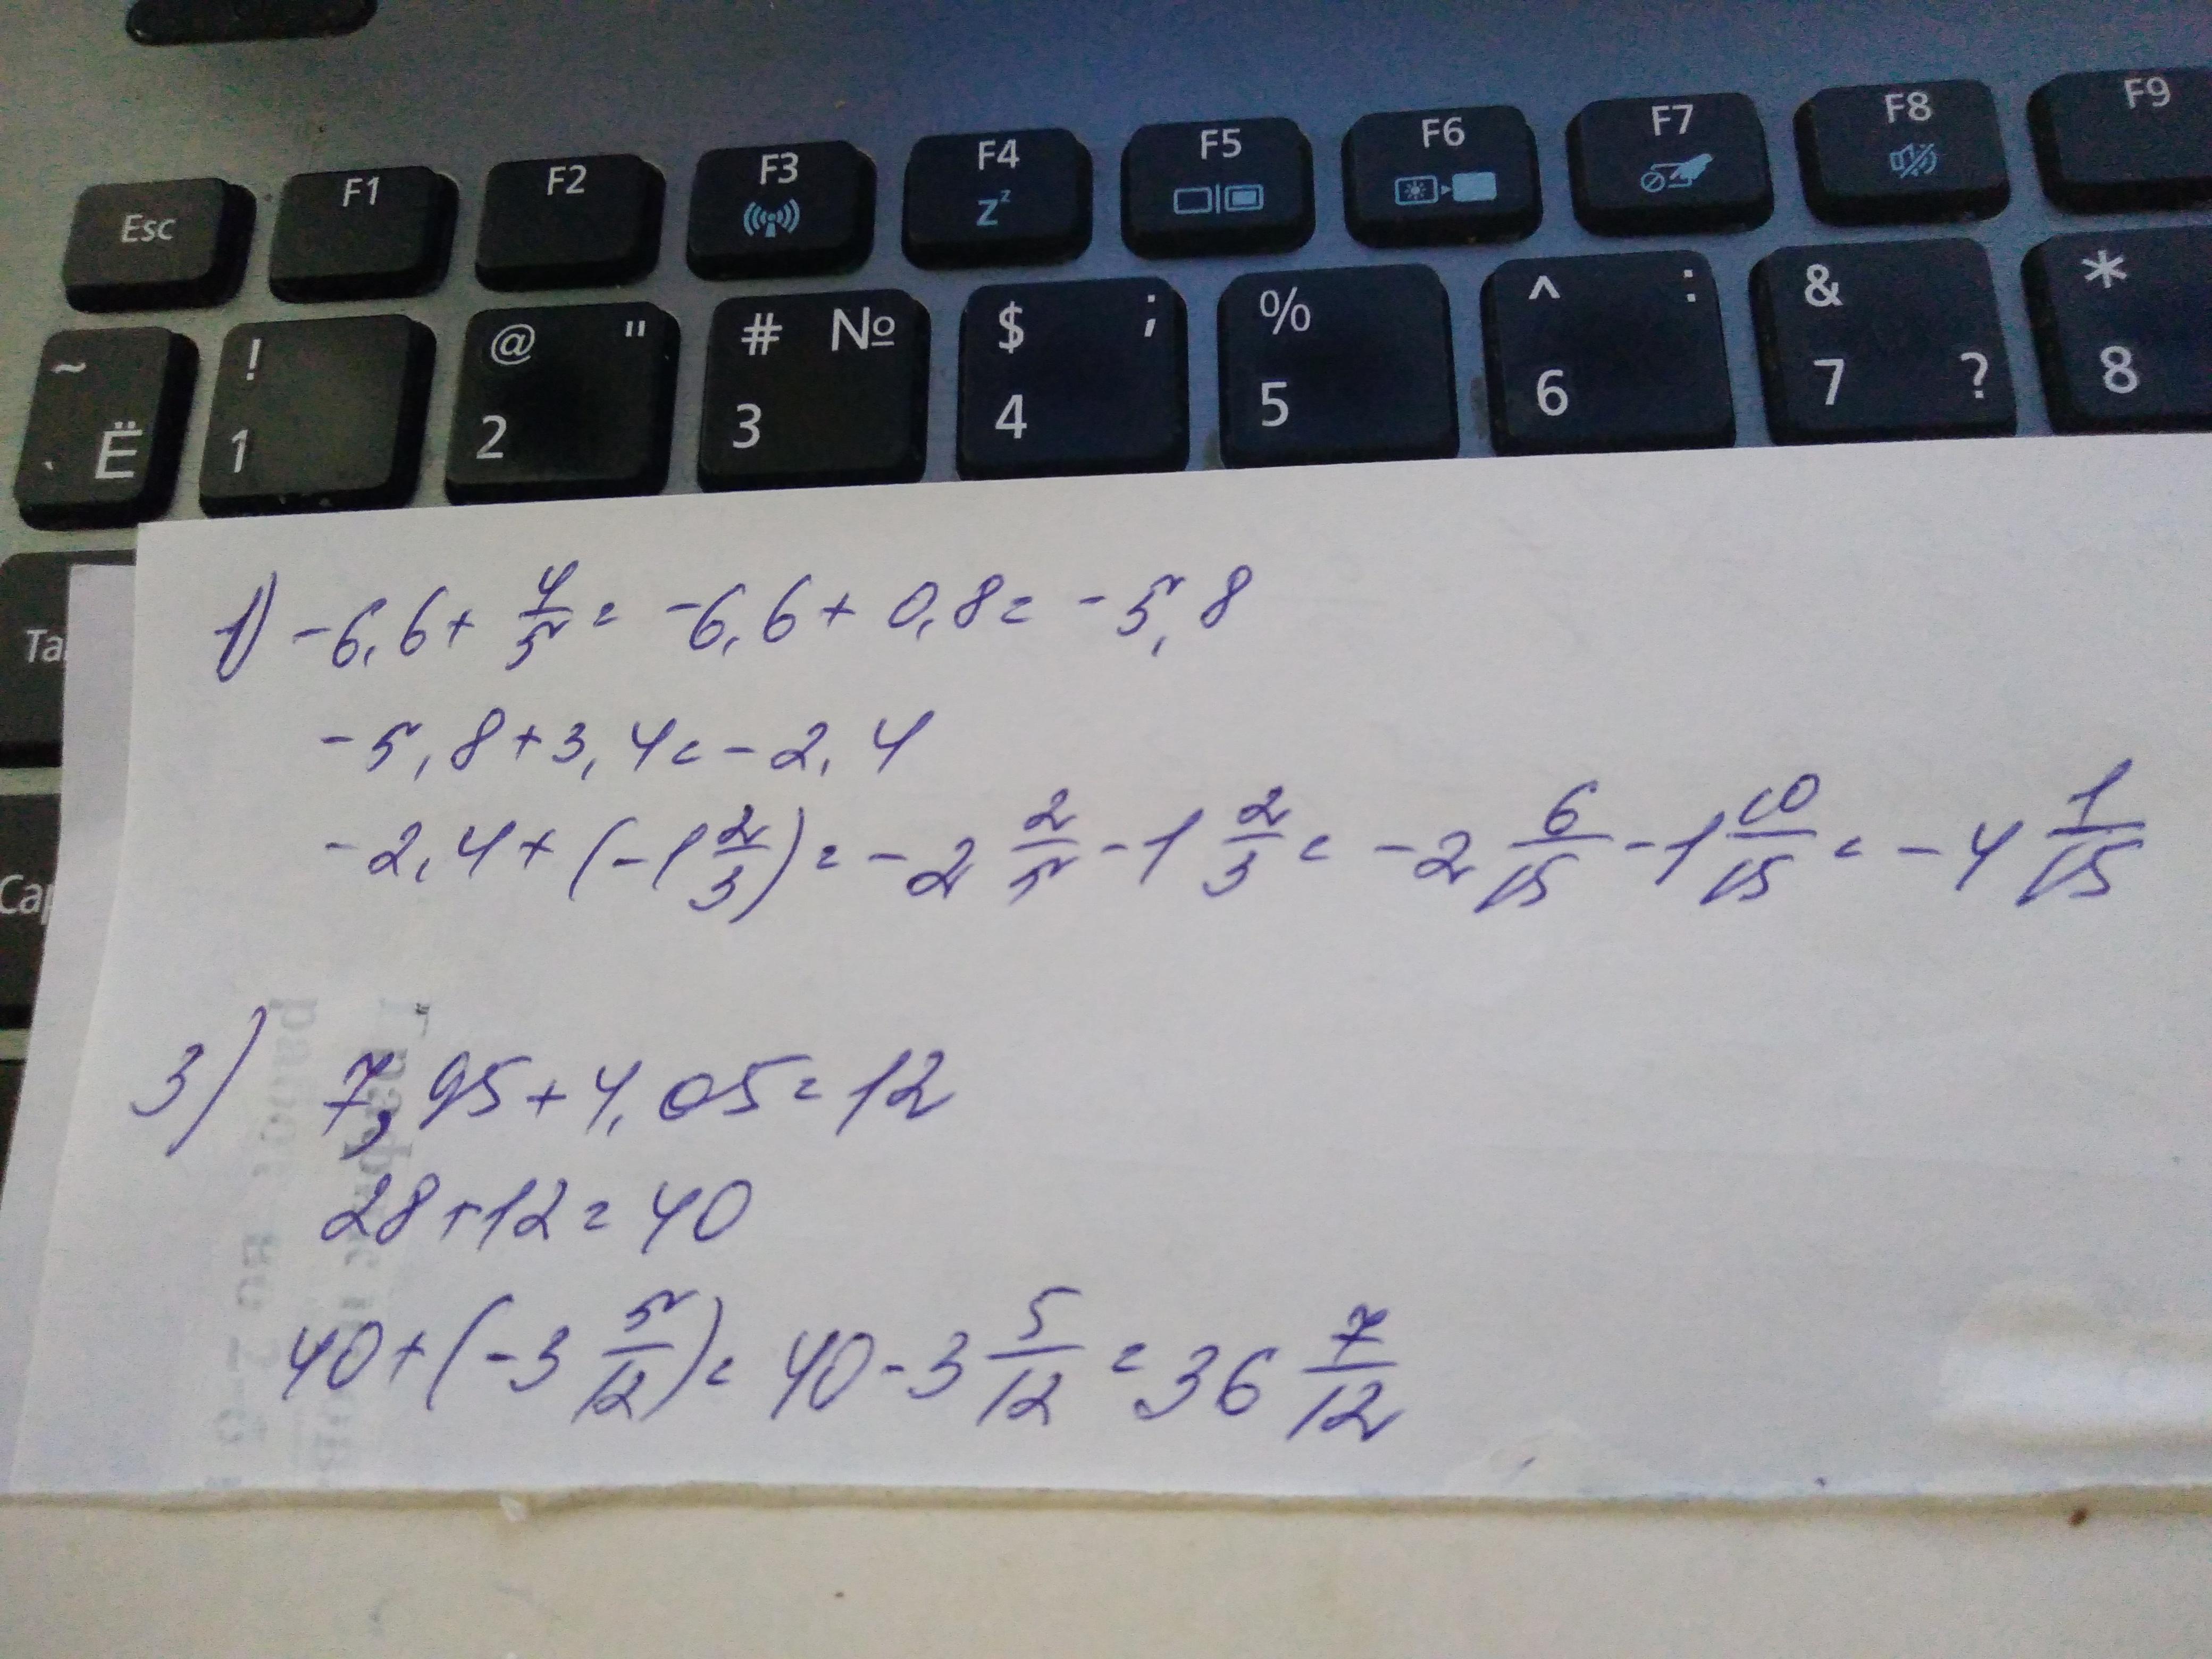 Esc F1 F2 F3 F4 F5 F6 F7 F8 F9
z^z
~ ! @ " # № $ ; % ^ : & *
Ё 1 2 3 4 5 6 7 ? 8
Ta
Cap
1) -6,6 + 4/5 = -6,6 + 0,8 = -5,8
-5,8 + 3,4 = -2,4
-2,4 + (-1 2/3) = -2 2/5 - 1 2/3 = -2 6/15 - 1 10/15 = -4 1/15
3) 7,95 + 4,05 = 12
28 + 12 = 40
40 + (-3 5/12) = 40 - 3 5/12 = 36 7/12